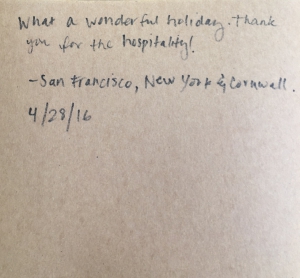 What a wonderful holiday. Thank
you for the hospitality!
-San Francisco, New York & Cornwall.
4/28/16